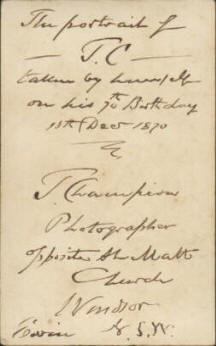 The portrait of
T.C
taken by himself
on his 70th Birthday
13th Decr 1870
T Champion
Photographer
opposite St Matts
Church
Windsor
N.S.W.